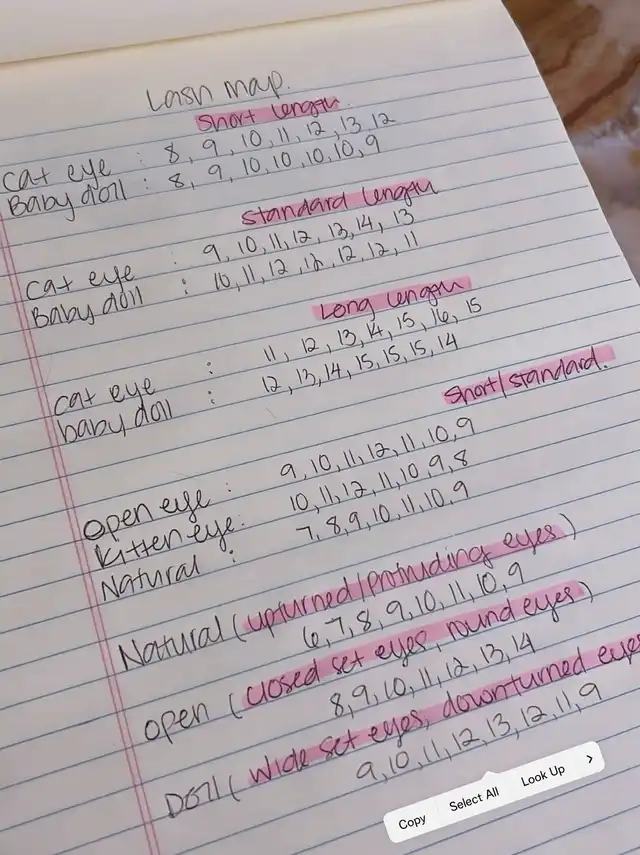 Lash map.
Short length.
Cat eye : 8, 9, 10, 11, 12, 13, 12
Baby doll : 8, 9, 10, 10, 10, 10, 9
Standard length
Cat eye : 9, 10, 11, 12, 13, 14, 13
Baby doll : 10, 11, 12, 12, 12, 12, 11
Long length
Cat eye : 11, 12, 13, 14, 15, 16, 15
baby doll : 12, 13, 14, 15, 15, 15, 14
Short/standard.
Open eye : 9, 10, 11, 12, 11, 10, 9
Kitten eye: 10, 11, 12, 11, 10, 9, 8
Natural : 7, 8, 9, 10, 11, 10, 9
Natural (upturned/protruding eyes)
6, 7, 8, 9, 10, 11, 10, 9
Open (closed set eyes, round eyes)
8, 9, 10, 11, 12, 13, 14
Doll (wide set eyes, downturned eyes
9, 10, 11, 12, 13, 12, 11, 9
Copy Select All Look Up >